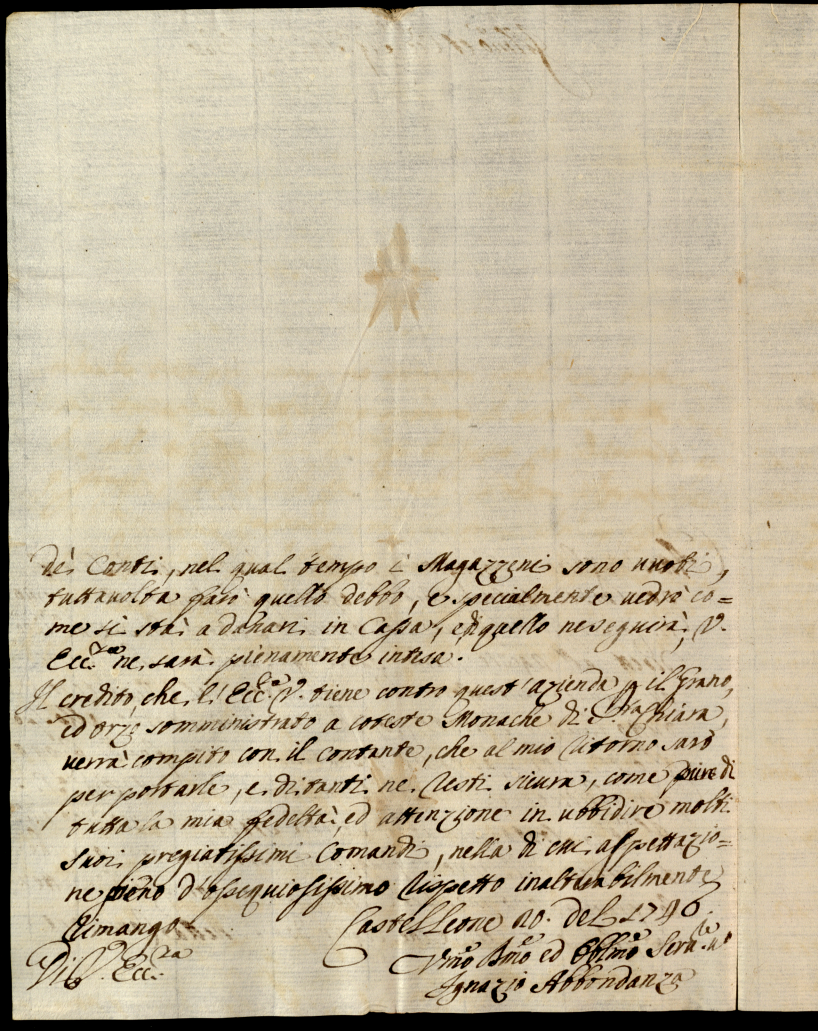 de' Conti, nel qual tempo i Magazzeni sono vuoti,
tuttavolta farò quello debbo, e specialmente vedrò co=
me si stà à danari in Cassa, e di quello ne seguirà, V.
Ecc.za ne sarà pienamente intesa.
Il credito, che l'Ecc.za V. tiene contro quest'azienda p il Grano,
ed orzo somministrato a coteste Monache di S.ta Chiara,
verrà compito con il contante, che al mio ritorno sarò
per portarle, e di tanti ne resti sicura, come pure di
tutta la mia fedeltà, ed attenzione in ubbidire molti
suoi pregiatissimi Comandi, nella di cui aspettazio=
ne pieno d'ossequiosissimo rispetto inalterabilmente
rimango
Castel Leone 20. del 1746
Di V. Ecc.za
Vmo Dmo ed Obblmo Ser.
Ignazio Abbondanza